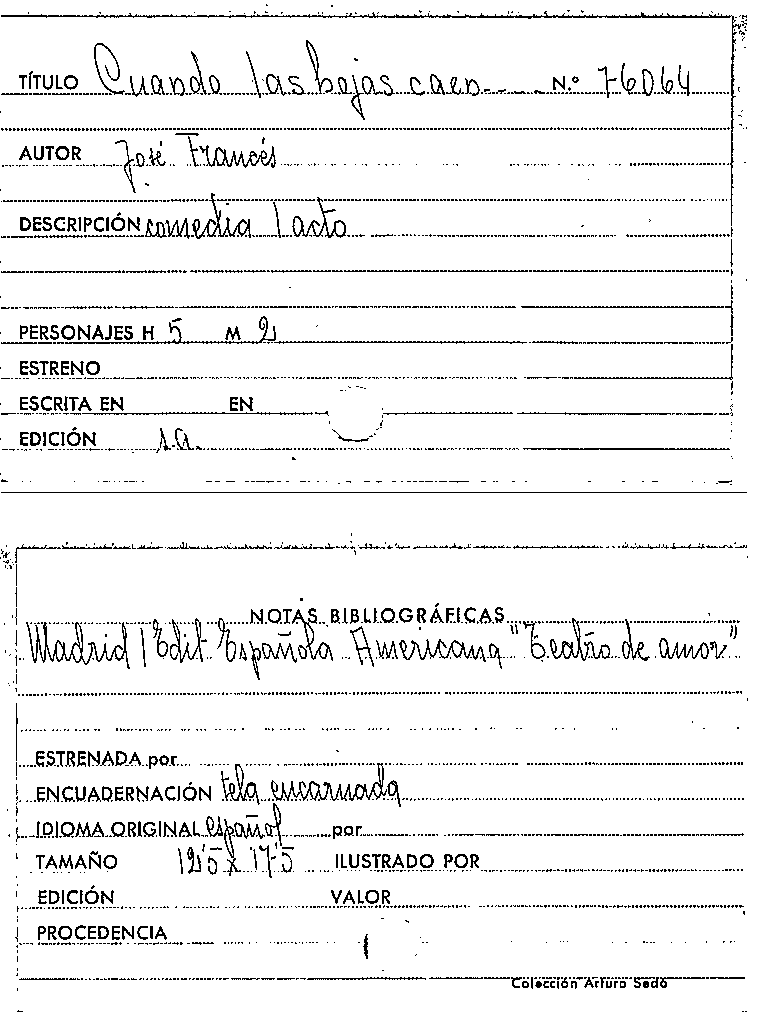 TÍTULO Cuando las hojas caen N.º 76064
AUTOR José Francés
DESCRIPCIÓN comedia 1 acto
PERSONAJES H 5 M 2
ESTRENO
ESCRITA EN EN
EDICIÓN s.a.
NOTAS BIBLIOGRÁFICAS
Madrid / Edit Española Americana "Teatro de amor"
ESTRENADA por
ENCUADERNACIÓN tela encarnada
IDIOMA ORIGINAL español por
TAMAÑO 12'5 x 17'5 ILUSTRADO POR
EDICIÓN VALOR
PROCEDENCIA
Colección Arturo Sedó